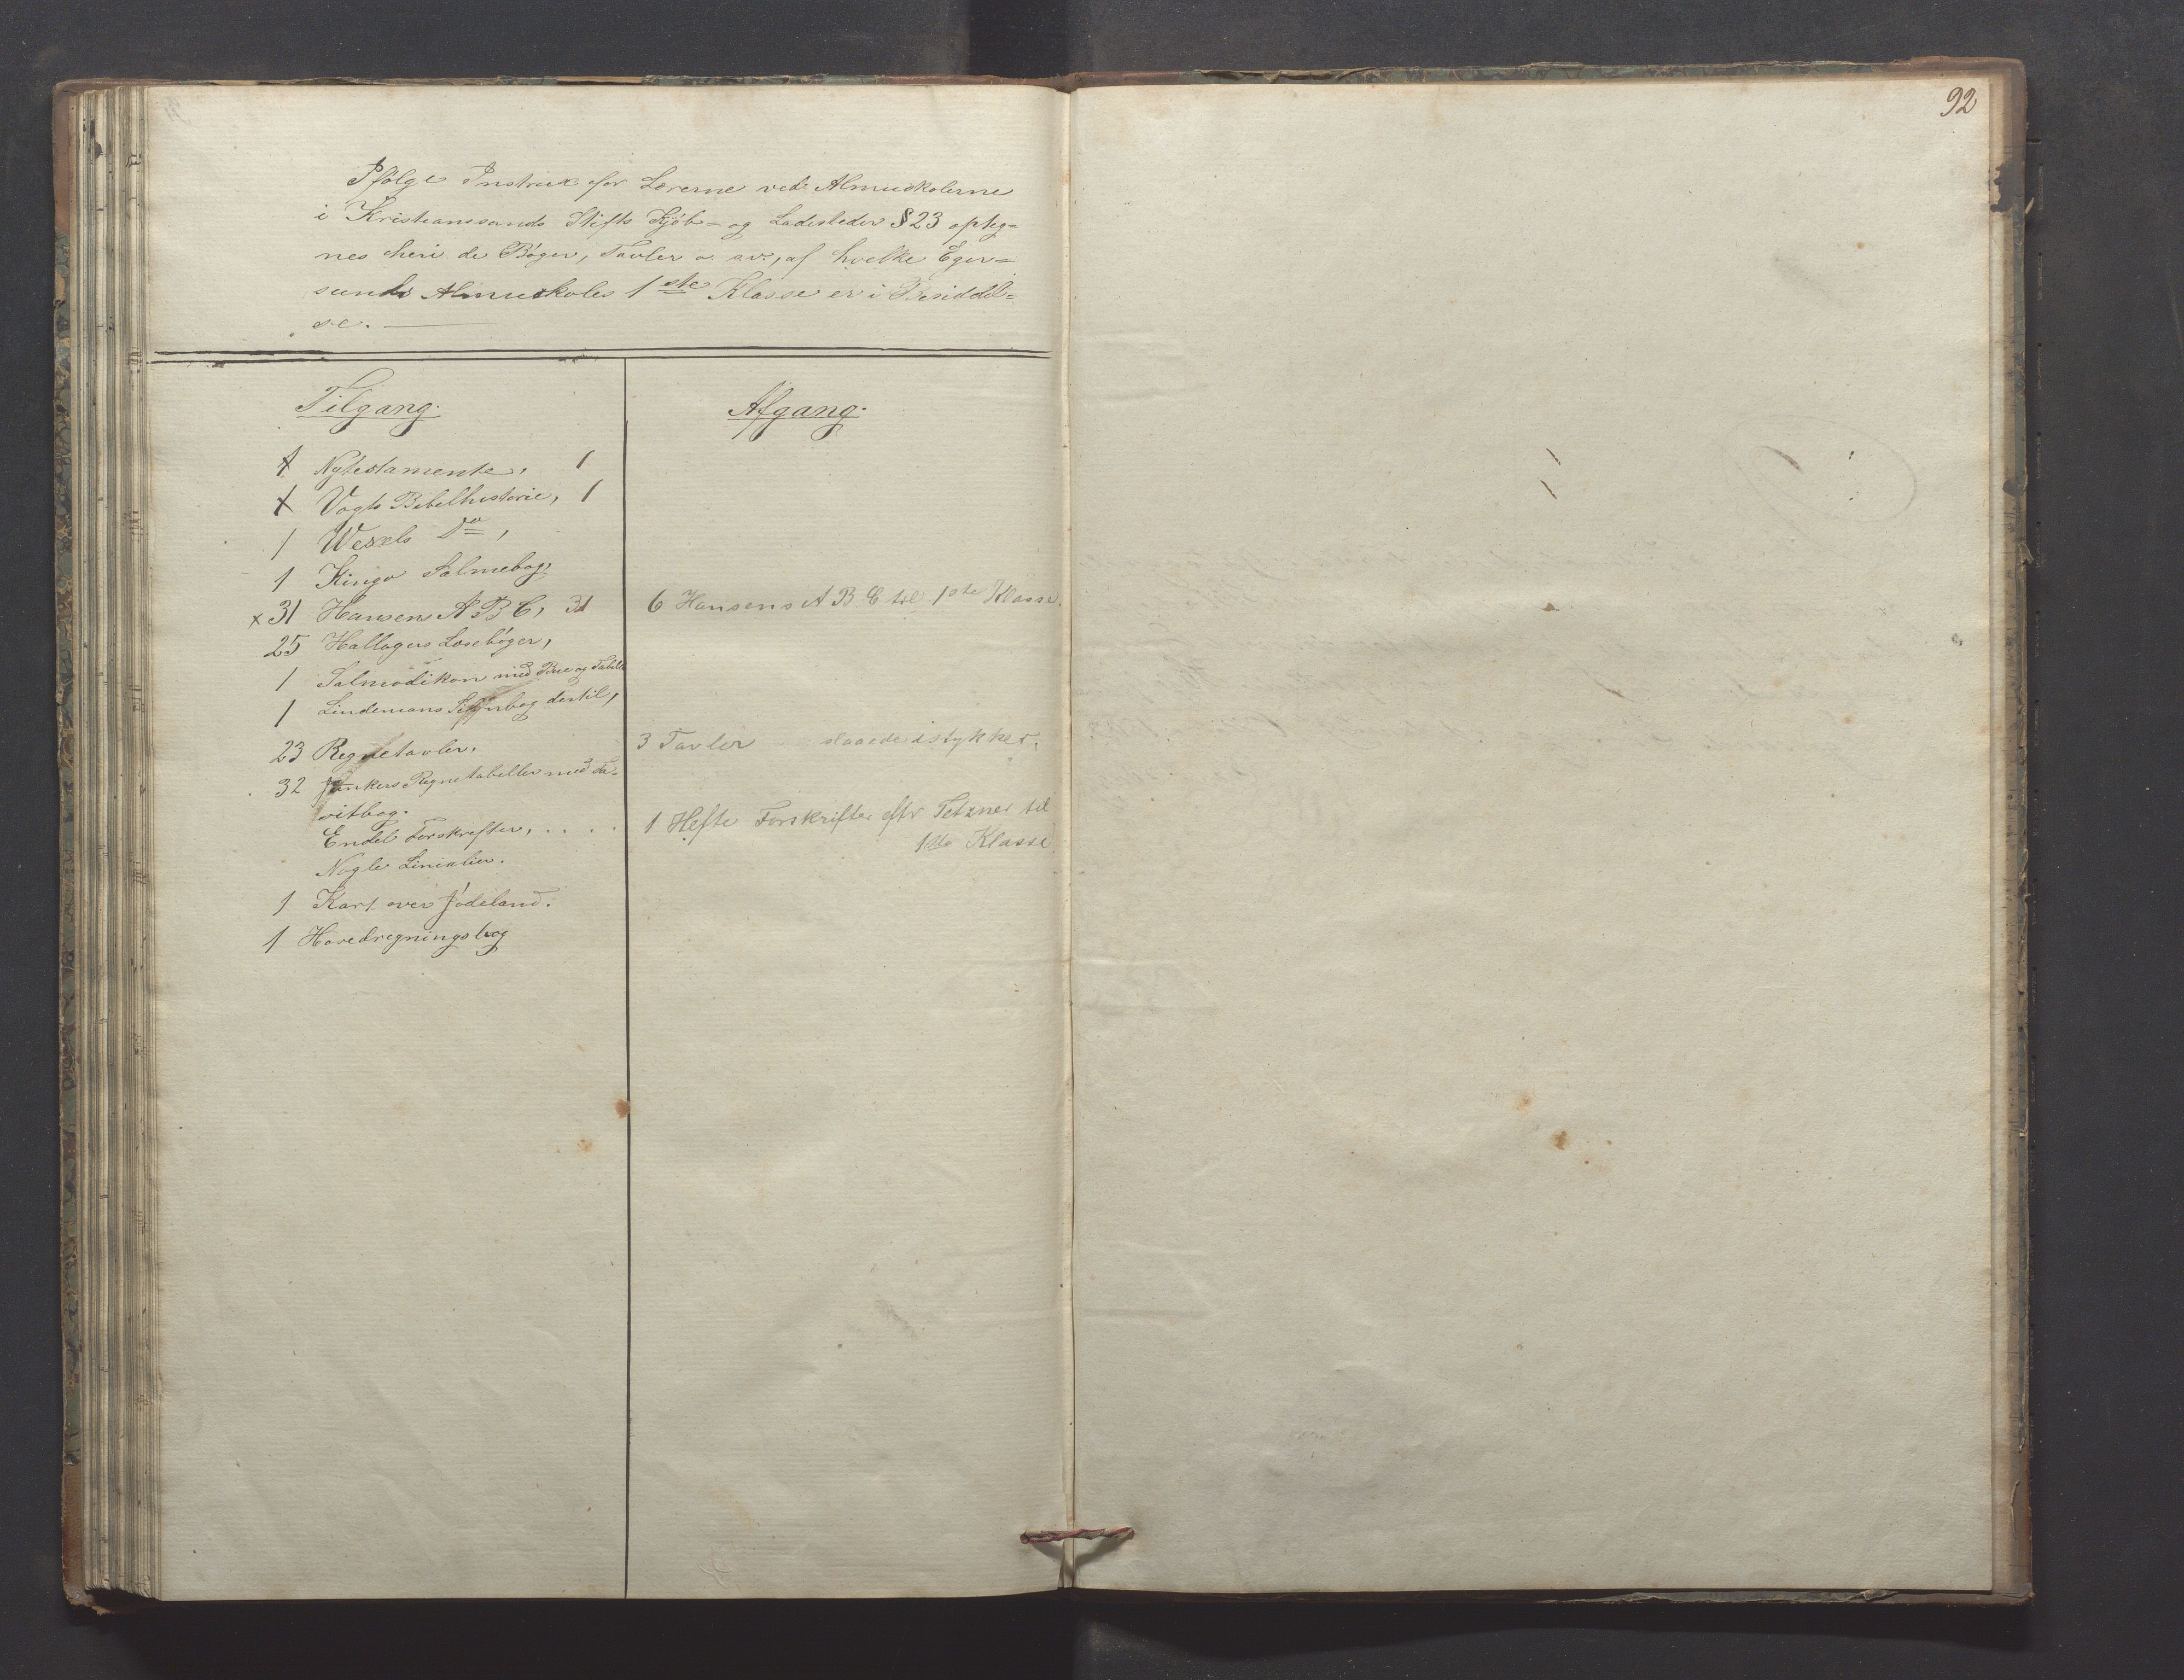 92
Ifølge Instrux for Lærerne ved Almuskolerne
i Kristianssands Stifts Kjøb- og Ladesteder § 23 opteg-
nes heri de Bøger, Tavler o. sv., af hvilke Eger-
sunds Almuskoles 1ste Klasse er i Besiddel-
se.
Tilgang.
Afgang.
1 Nytestamente, 1
1 Vogts Bibelhistorie, 1
1 Wexels Do,
1 Kingo Salmebog,
x 31 Hansens A B C, 31
6 Hansens A B C til 1ste Klasse.
25 Hallagers Læsebøger,
1 Salmodikon med Bue og Tabel
1 Lindemans bog dertil,
23 Regnetavler.
3 Tavler slaaede istykker.
32 Regnetabeller med Fa-
citbog.
Endel Forskrifter, . . . .
1 Hefte Forskrifter eftr Tetzner til
1ste Klasse
Nogle Linialer.
1 Kart over Jødeland.
1 Hovedregningsbog